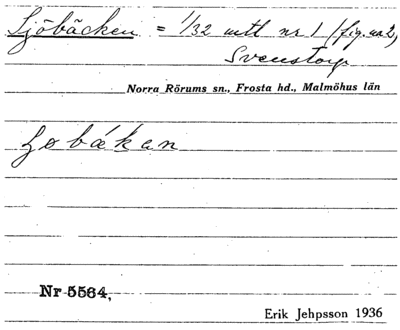 Sjöbäcken = 1/32 mtl nr 1 (fig. na 2,
Svenstorp
Norra Rörums sn., Frosta hd., Malmöhus län
Nr 5564,
Erik Jehpsson 1936